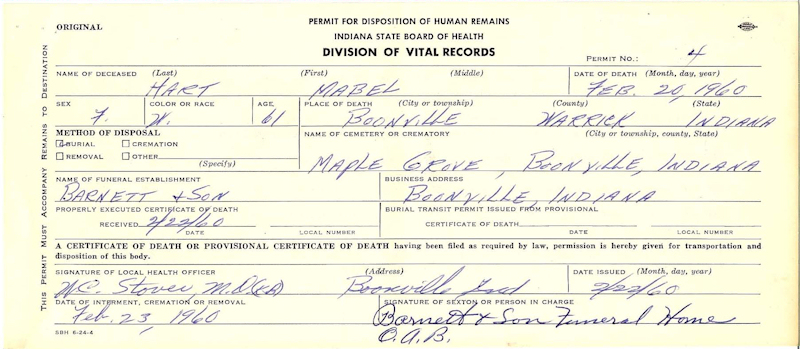 ORIGINAL
PERMIT FOR DISPOSITION OF HUMAN REMAINS
INDIANA STATE BOARD OF HEALTH
DIVISION OF VITAL RECORDS
PERMIT NO.: 4
THIS PERMIT MUST ACCOMPANY REMAINS TO DESTINATION
NAME OF DECEASED (Last) (First) (Middle) DATE OF DEATH (Month, day, year)
HART MABEL FEB. 20, 1960
SEX COLOR OR RACE AGE PLACE OF DEATH (City or township) (County) (State)
F. W. 61 BOONVILLE WARRICK INDIANA
METHOD OF DISPOSAL NAME OF CEMETERY OR CREMATORY (City or township, county, State)
BURIAL CREMATION
REMOVAL OTHER
(Specify)
MAPLE GROVE, BOONVILLE, INDIANA
NAME OF FUNERAL ESTABLISHMENT BUSINESS ADDRESS
BARNETT & SON BOONVILLE, INDIANA
PROPERLY EXECUTED CERTIFICATE OF DEATH BURIAL TRANSIT PERMIT ISSUED FROM PROVISIONAL
RECEIVED 2/22/60 CERTIFICATE OF DEATH
DATE LOCAL NUMBER DATE LOCAL NUMBER
A CERTIFICATE OF DEATH OR PROVISIONAL CERTIFICATE OF DEATH having been filed as required by law, permission is hereby given for transportation and
disposition of this body.
SIGNATURE OF LOCAL HEALTH OFFICER (Address) DATE ISSUED (Month, day, year)
W.C. Stover M.D. Boonville Ind 2/22/60
DATE OF INTERMENT, CREMATION OR REMOVAL SIGNATURE OF SEXTON OR PERSON IN CHARGE
Feb. 23, 1960 Barnett & Son Funeral Home
O.A.B.
SBH 6-24-4